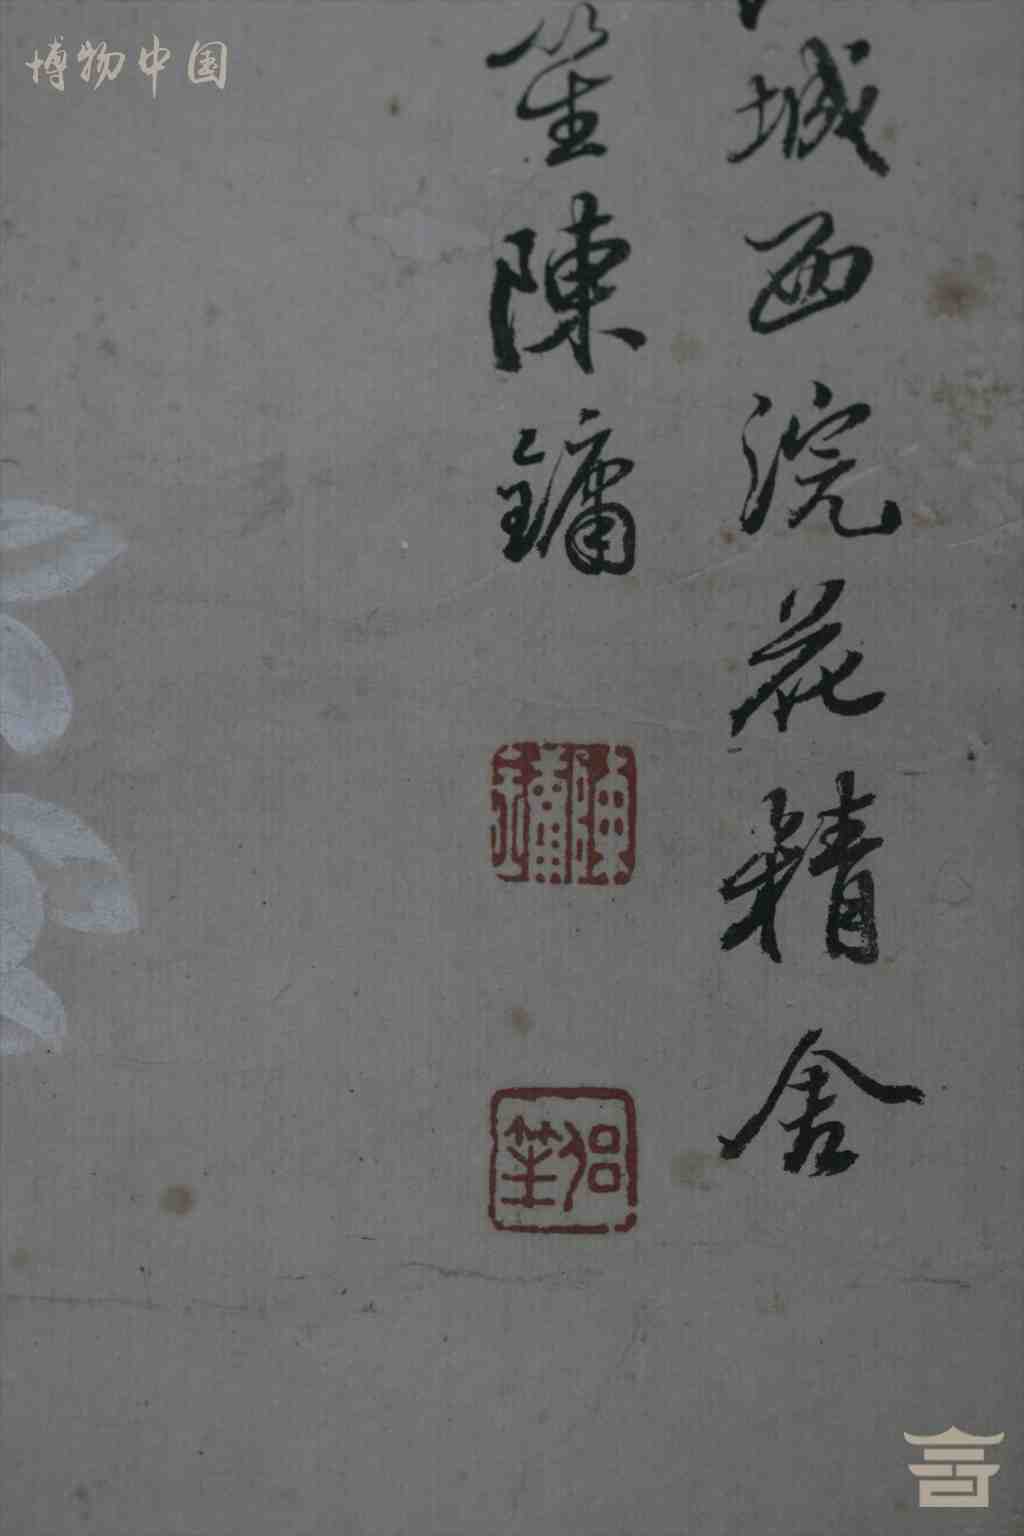 博物中国
城西浣花精舍
笙陳鏞
侶笙